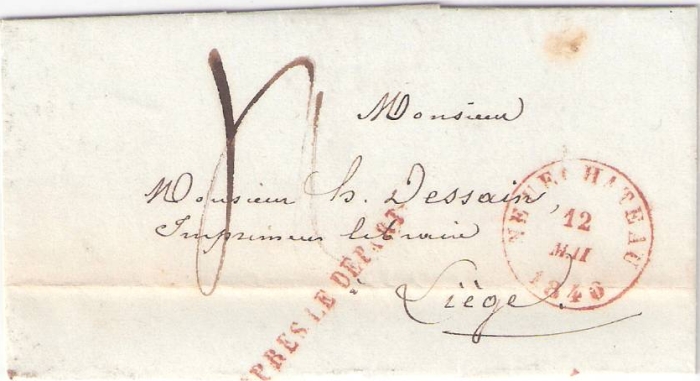 Monsieur
Monsieur h. Dessain,
Imprimeur libraire
à Liège.
NEUFCHATEAU
12
MAI
1846
APRES LE DEPART